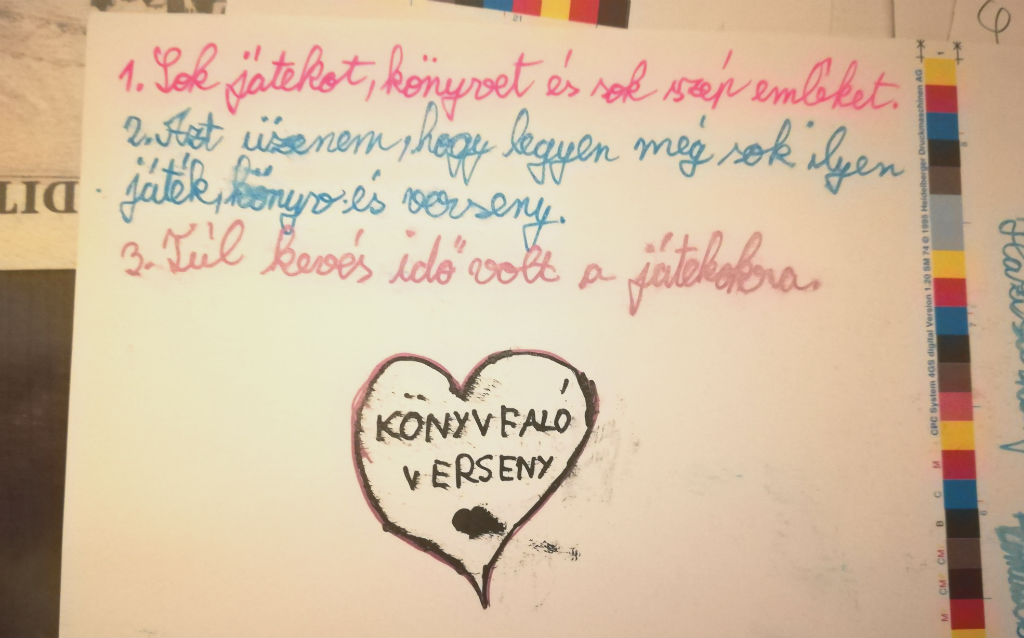 1. Sok játékot, könyvet és sok szép emléket.
2. Azt üzenem, hogy legyen még sok ilyen
játék, könyv és verseny.
3. Túl kevés idő volt a játékokra.
KÖNYVFALÓ
VERSENY
CPC System 4GS digital Version 1.20 SM 74 © 1998 Heidelberger Druckmaschinen AG
M
C
B
CM
CM
M
21
DIT